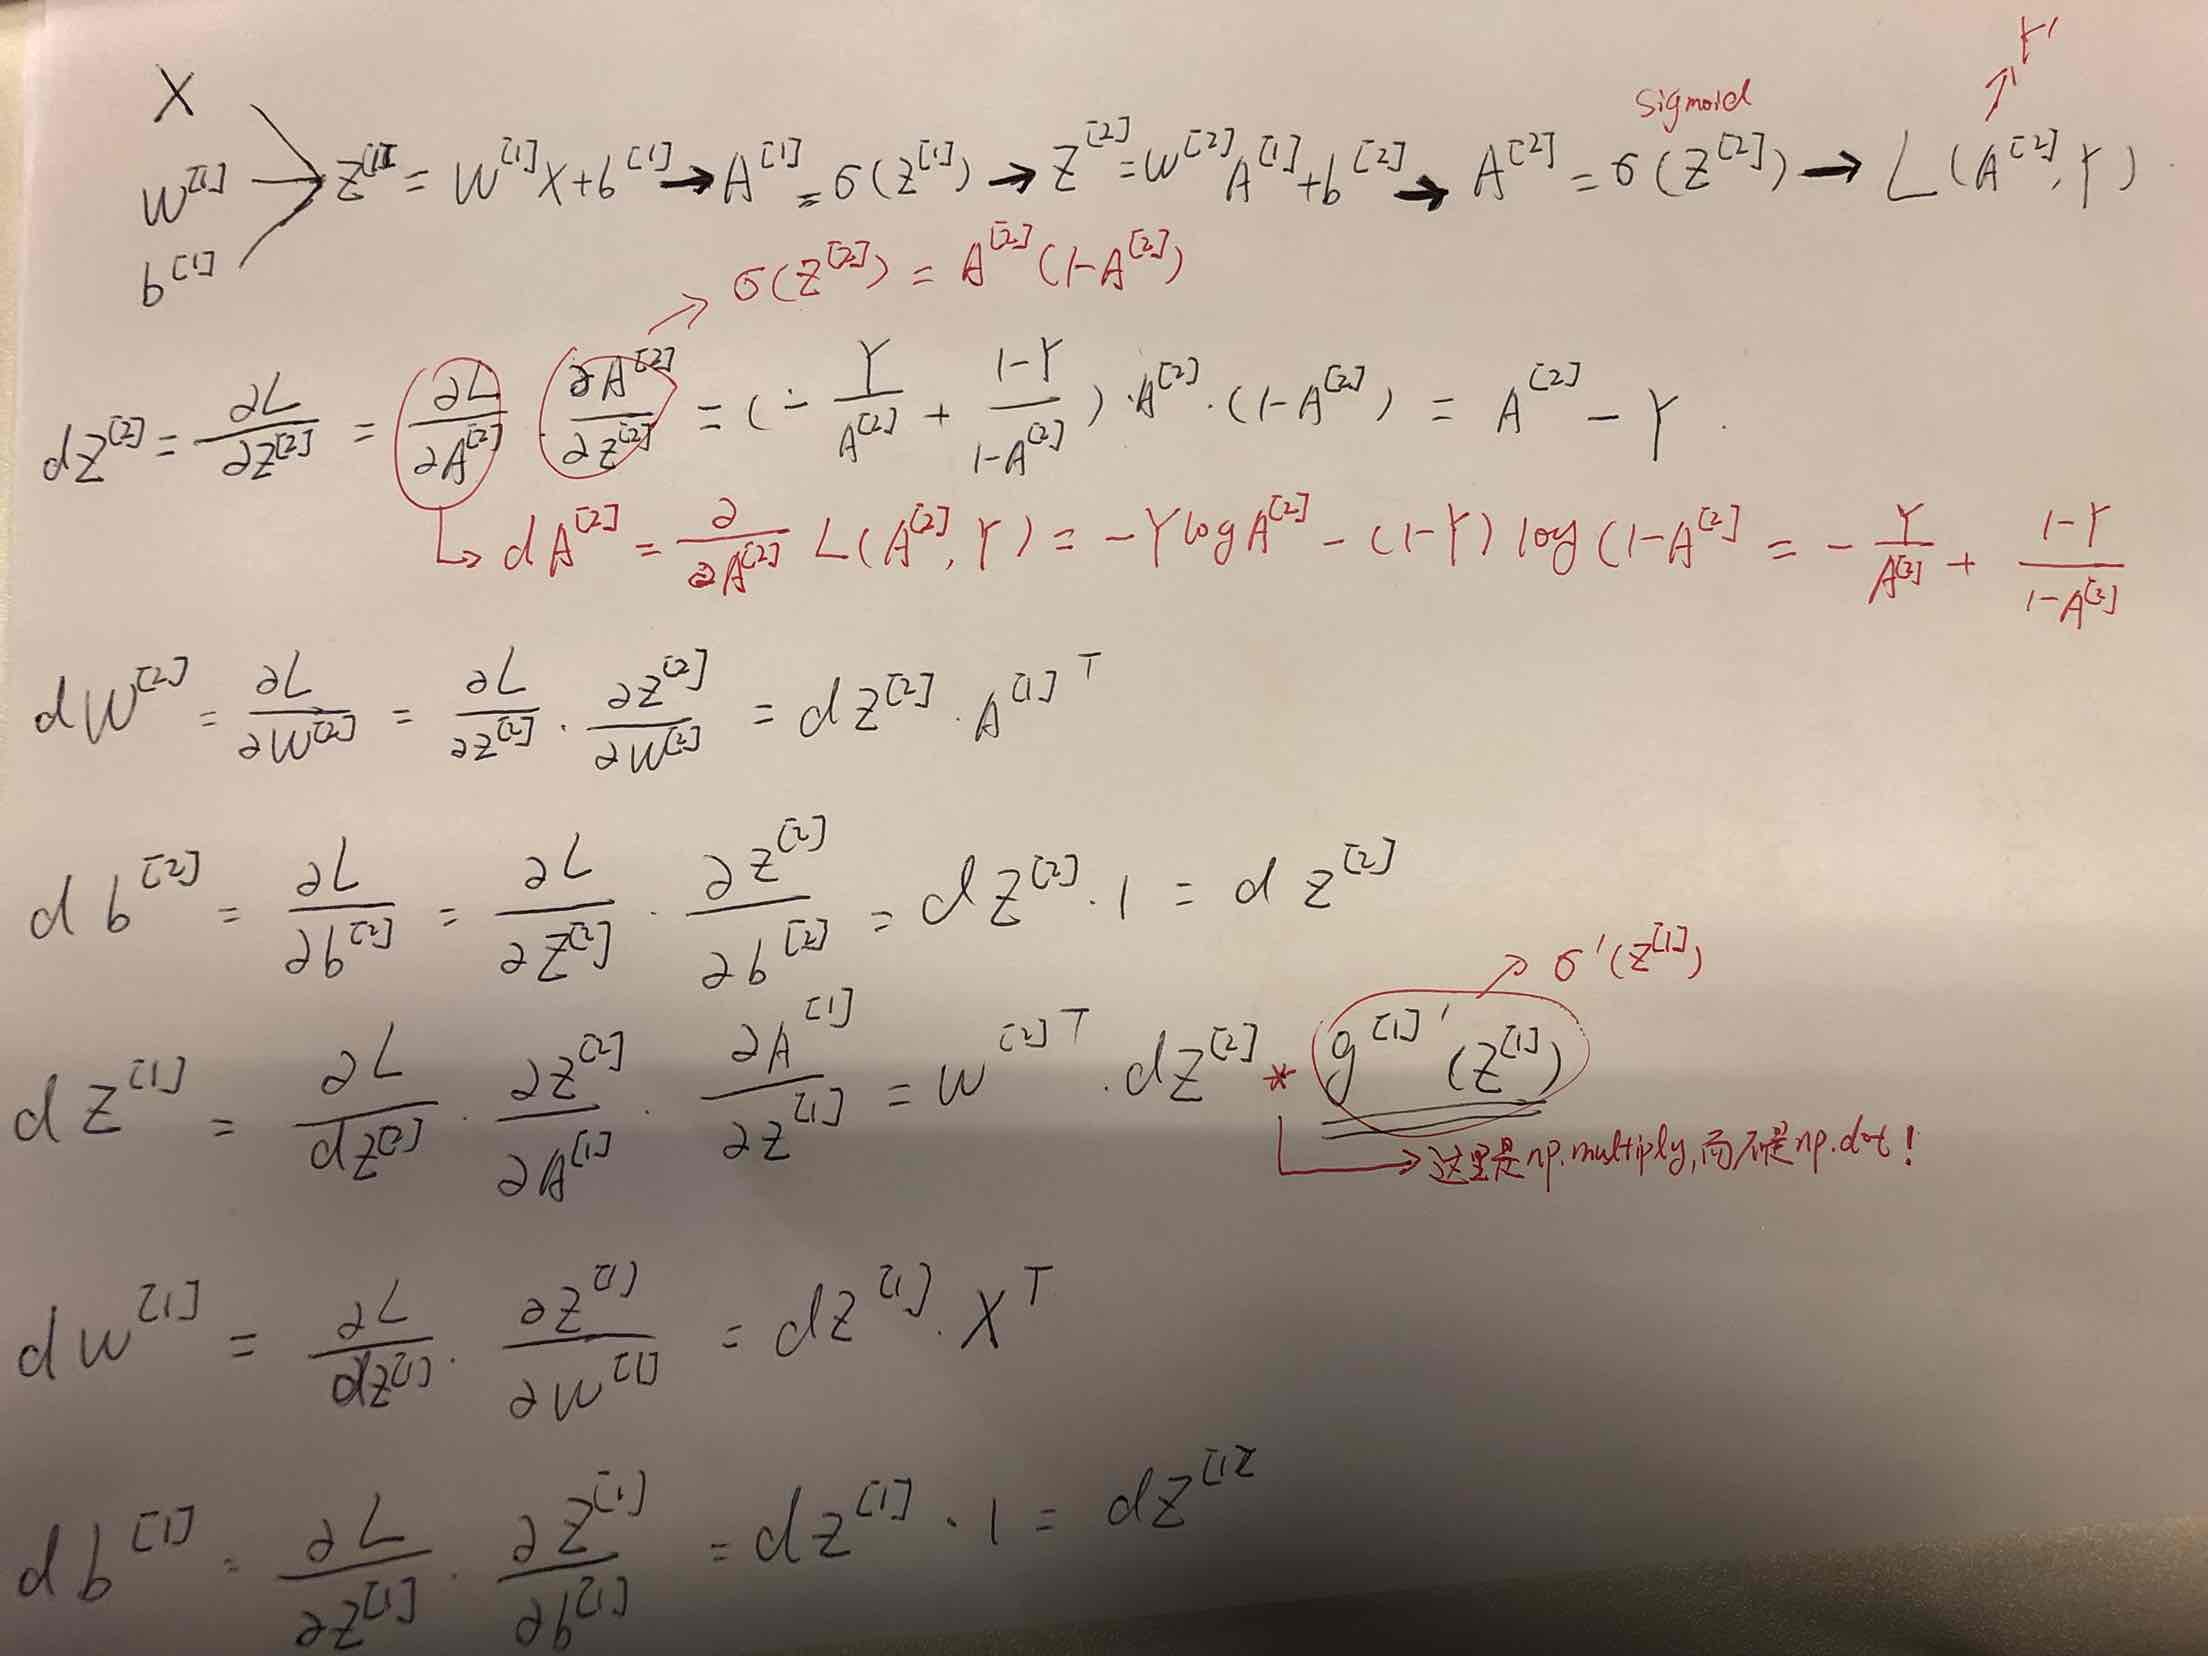 Y'
sigmoid
X
W^[1]
b^[1]
Z^[1] = W^[1]X+b^[1] → A^[1] = σ(Z^[1]) → Z^[2] = W^[2]A^[1]+b^[2] → A^[2] = σ(Z^[2]) → L(A^[2],Y)
σ(Z^[2]) = A^[2](1-A^[2])
dZ^[2] = ∂L/∂Z^[2] = ∂L/∂A^[2] · ∂A^[2]/∂Z^[2] = (-Y/A^[2] + (1-Y)/(1-A^[2])) · A^[2] · (1-A^[2]) = A^[2] - Y
dA^[2] = ∂/∂A^[2] L(A^[2],Y) = -YlogA^[2] - (1-Y)log(1-A^[2] = -Y/A^[2] + (1-Y)/(1-A^[2])
dW^[2] = ∂L/∂W^[2] = ∂L/∂Z^[2] · ∂Z^[2]/∂W^[2] = dZ^[2] · A^[1]T
db^[2] = ∂L/∂b^[2] = ∂L/∂Z^[2] · ∂Z^[2]/∂b^[2] = dZ^[2] · 1 = dZ^[2]
σ'(Z^[1])
dZ^[1] = ∂L/dZ^[2] · ∂Z^[2]/∂A^[1] · ∂A^[1]/∂Z^[1] = W^[2]T · dZ^[2] * g^[1]'(Z^[1])
这里是np.multiply,而不是np.dot!
dW^[1] = ∂L/dZ^[1] · ∂Z^[1]/∂W^[1] = dZ^[1] · X^T
db^[1] = ∂L/∂Z^[1] · ∂Z^[1]/∂b^[1] = dZ^[1] · 1 = dZ^[1]